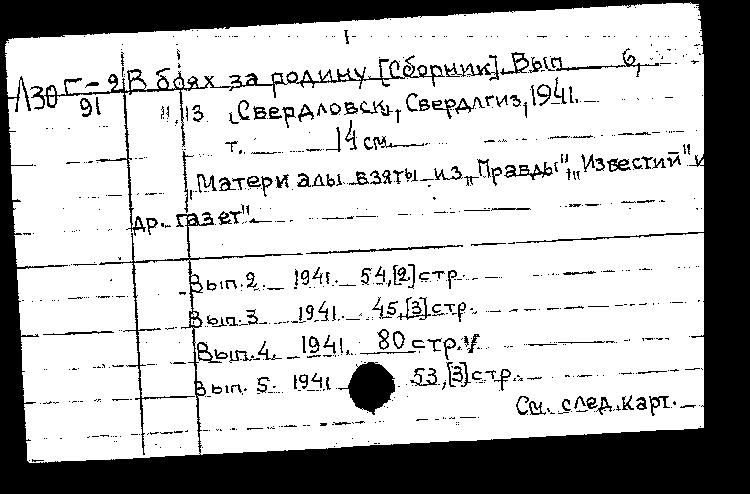 I
Л30 Г-9 В боях за родину [Сборник]. Вып 6,
91 11,13 Свердловск, Свердлгиз, 1941.
т. 14 см.
„Материалы взяты из „Правды", „Известий" и
др. газет".
Вып. 2. 1941. 54,[2] стр.
Вып. 3 1941. 45,[3] стр.
Вып. 4. 1941. 80 стр. V
Вып. 5. 1941 53,[3] стр.
См. след. карт.